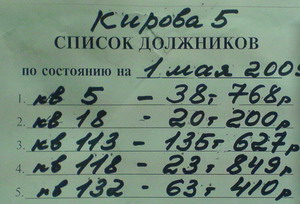 Кирова 5
СПИСОК ДОЛЖНИКОВ
по состоянию на 1 мая 200
1. кв 5 - 38т 768р
2. кв 18 - 20т 200р
3. кв 113 - 135т 627р
4. кв 118 - 23т 849р
5. кв 132 - 63т 410р